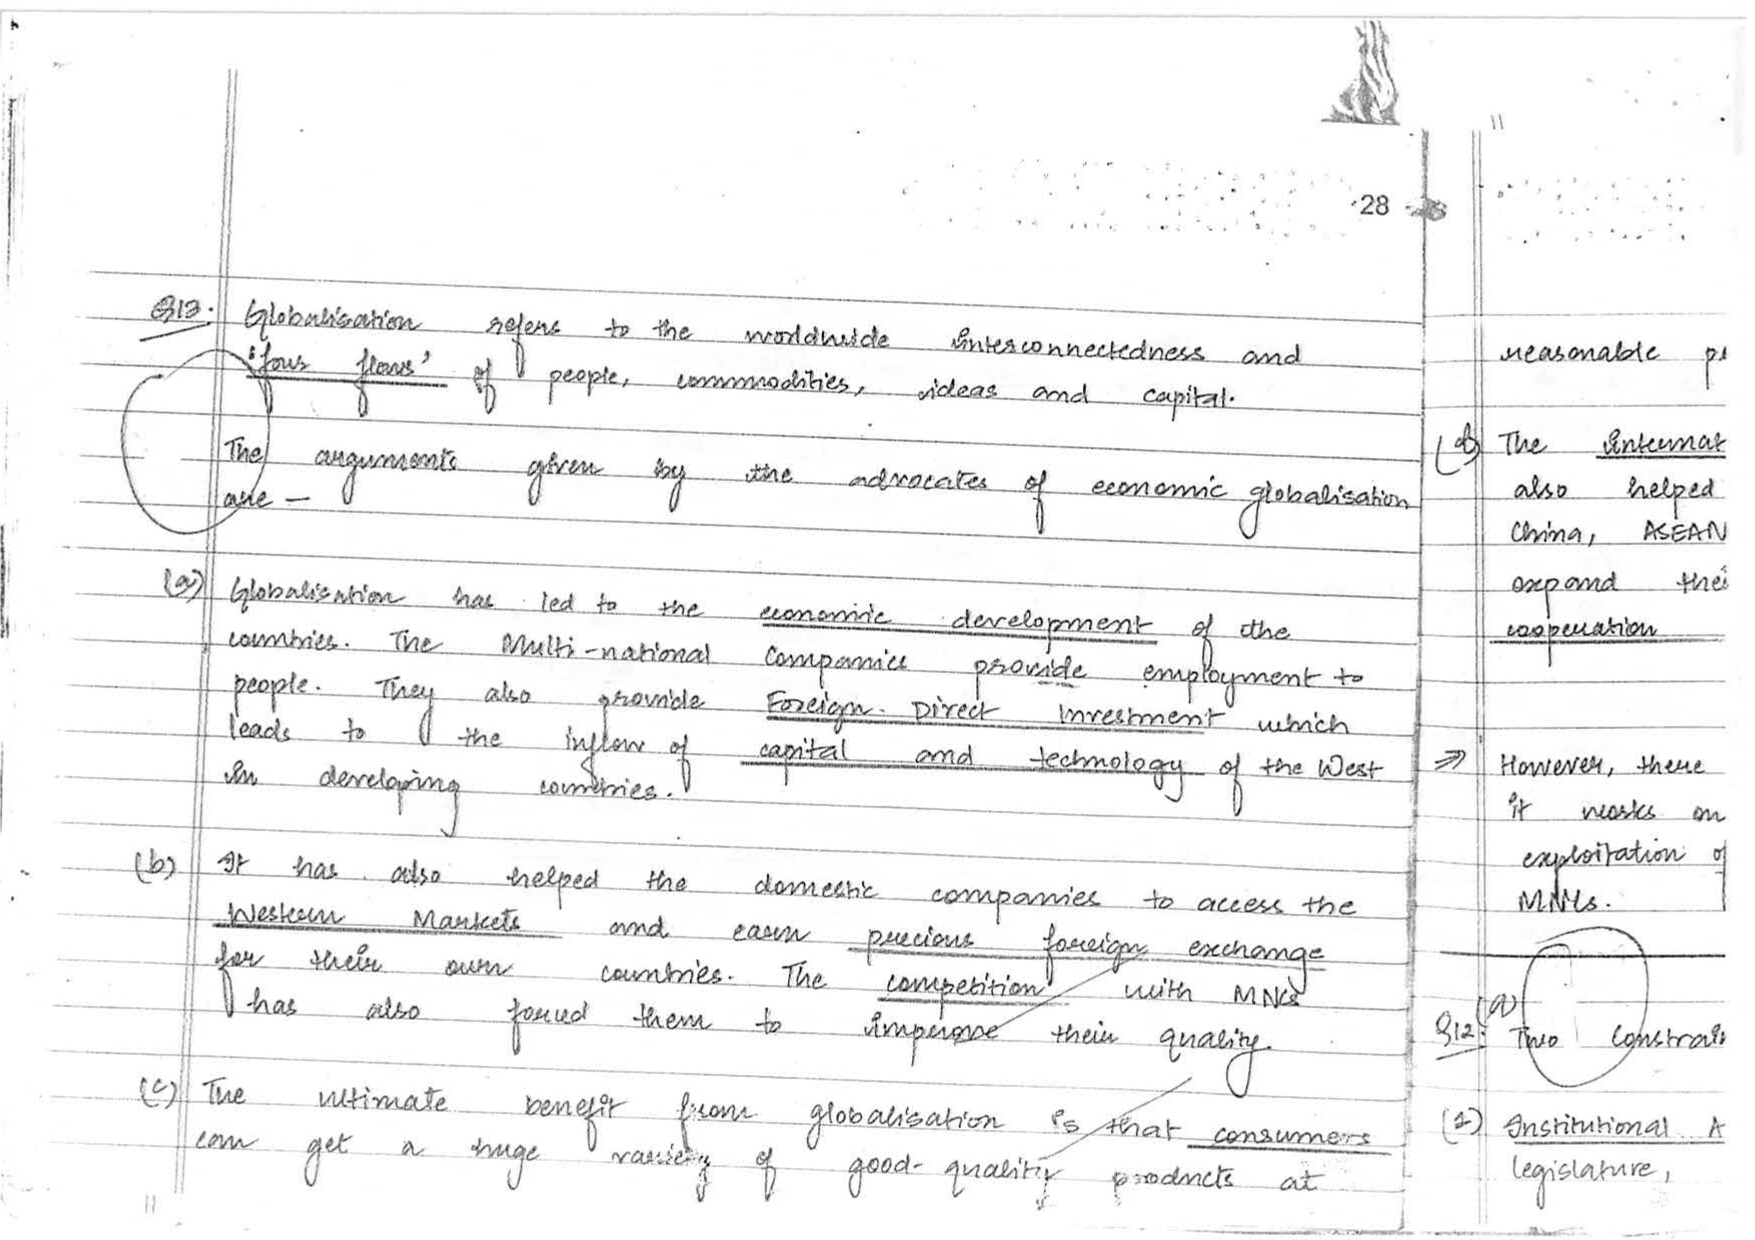 28
Q13. Globalisation refers to the worldwide interconnectedness and
'four flows' of people, commodities, ideas and capital.
The arguments given by the advocates of economic globalisation
are —
(a) Globalisation has led to the economic development of the
countries. The Multi-national Companies provide employment to
people. They also provide Foreign Direct Investment which
leads to the inflow of capital and technology of the West
in developing countries.
(b) It has also helped the domestic companies to access the
Western Markets and earn precious foreign exchange
for their own countries. The competition with MNCs
has also forced them to improve their quality.
(c) The ultimate benefit from globalisation is that consumers
can get a huge variety of good-quality products at
reasonable
(d) The
also helped
China, ASEAN
expand
cooperation
⇒ However, there
it works on
exploitation
MNCs.
Q12. (a) Two
(1) Institutional
legislature,